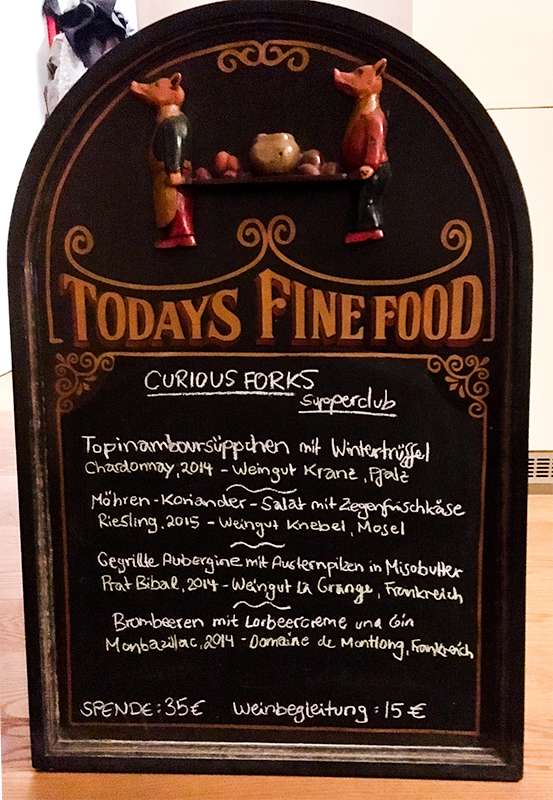 TODAYS FINE FOOD
CURIOUS FORKS
Supperclub
Topinamboursüppchen mit Wintertrüffel
Chardonnay, 2014 - Weingut Kranz, Pfalz
Möhren-Koriander-Salat mit Ziegenfrischkäse
Riesling, 2015 - Weingut Knebel, Mosel
Gegrillte Aubergine mit Austernpilzen in Misobutter
Prat Bibal, 2014 - Weingut La Grange, Frankreich
Brombeeren mit Lorbeercreme und Gin
Monbazillac, 2014 - Domaine de Montlong, Frankreich
SPENDE: 35€ Weinbegleitung: 15€